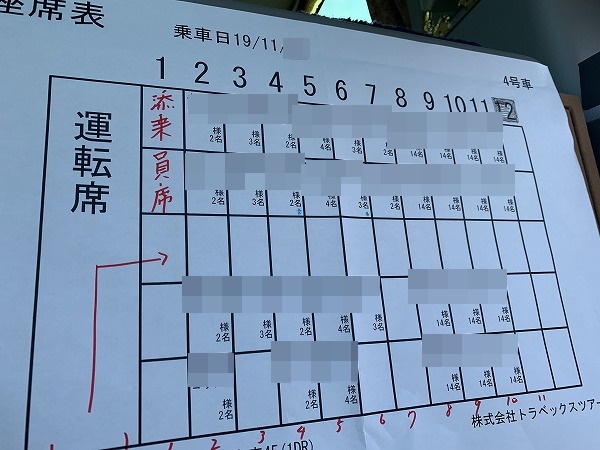 座席表
乗車日19/11/
4号車
1 2 3 4 5 6 7 8 9 10 11 12
運転席
添乗
員席
様 2名 様 3名 様 2名 様 4名 様 3名 様 14名 様 14名 様 14名 様 14名
様 2名 様 3名 様 2名 様 4名 様 3名 様 14名 様 14名 様 14名
様 2名 様 3名 様 2名 様 4名 様 3名 様 14名 様 14名 様 14名
様 2名 様 2名 様 4名 様 14名 様 14名 様 14名
1 2 3 4 5 6 7 8 9 10 11
株式会社トラベックスツアー
45(1DR)